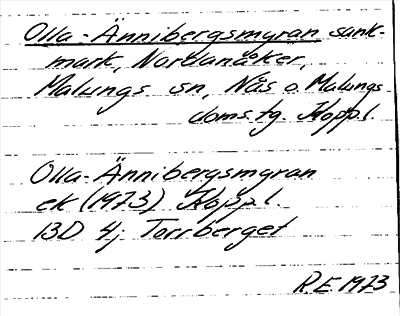 Olla-Ännibergsmyran sank-
mark, Nordanåker,
Malungs sn, Nås o. Malungs
doms.tg. Koppl.
Olla-Ännibergsmyran
ek (1973) Koppl.
13D 4j Torrberget
R.E. 1973